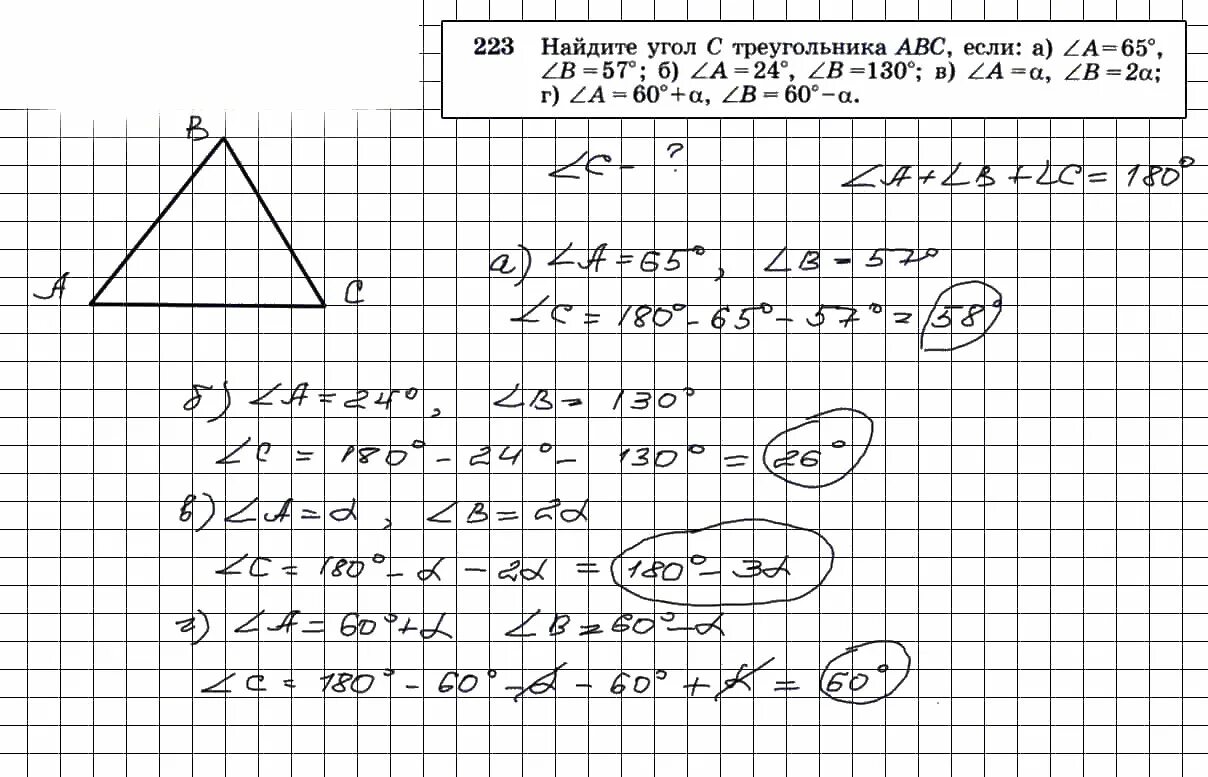 223 Найдите угол C треугольника ABC, если: а) ∠A=65°,
∠B=57°; б) ∠A=24°, ∠B=130°; в) ∠A=α, ∠B=2α;
г) ∠A=60°+α, ∠B=60°−α.
B
A
C
∠C - ?
∠A+∠B+∠C=180°
а) ∠A=65°, ∠B=57°
∠C=180°-65°-57°=58°
б) ∠A=24°, ∠B=130°
∠C=180°-24°-130°=26°
в) ∠A=α, ∠B=2α
∠C=180°-α-2α=180°-3α
г) ∠A=60°+α ∠B=60°-α
∠C=180°-60°-α-60°+α=60°